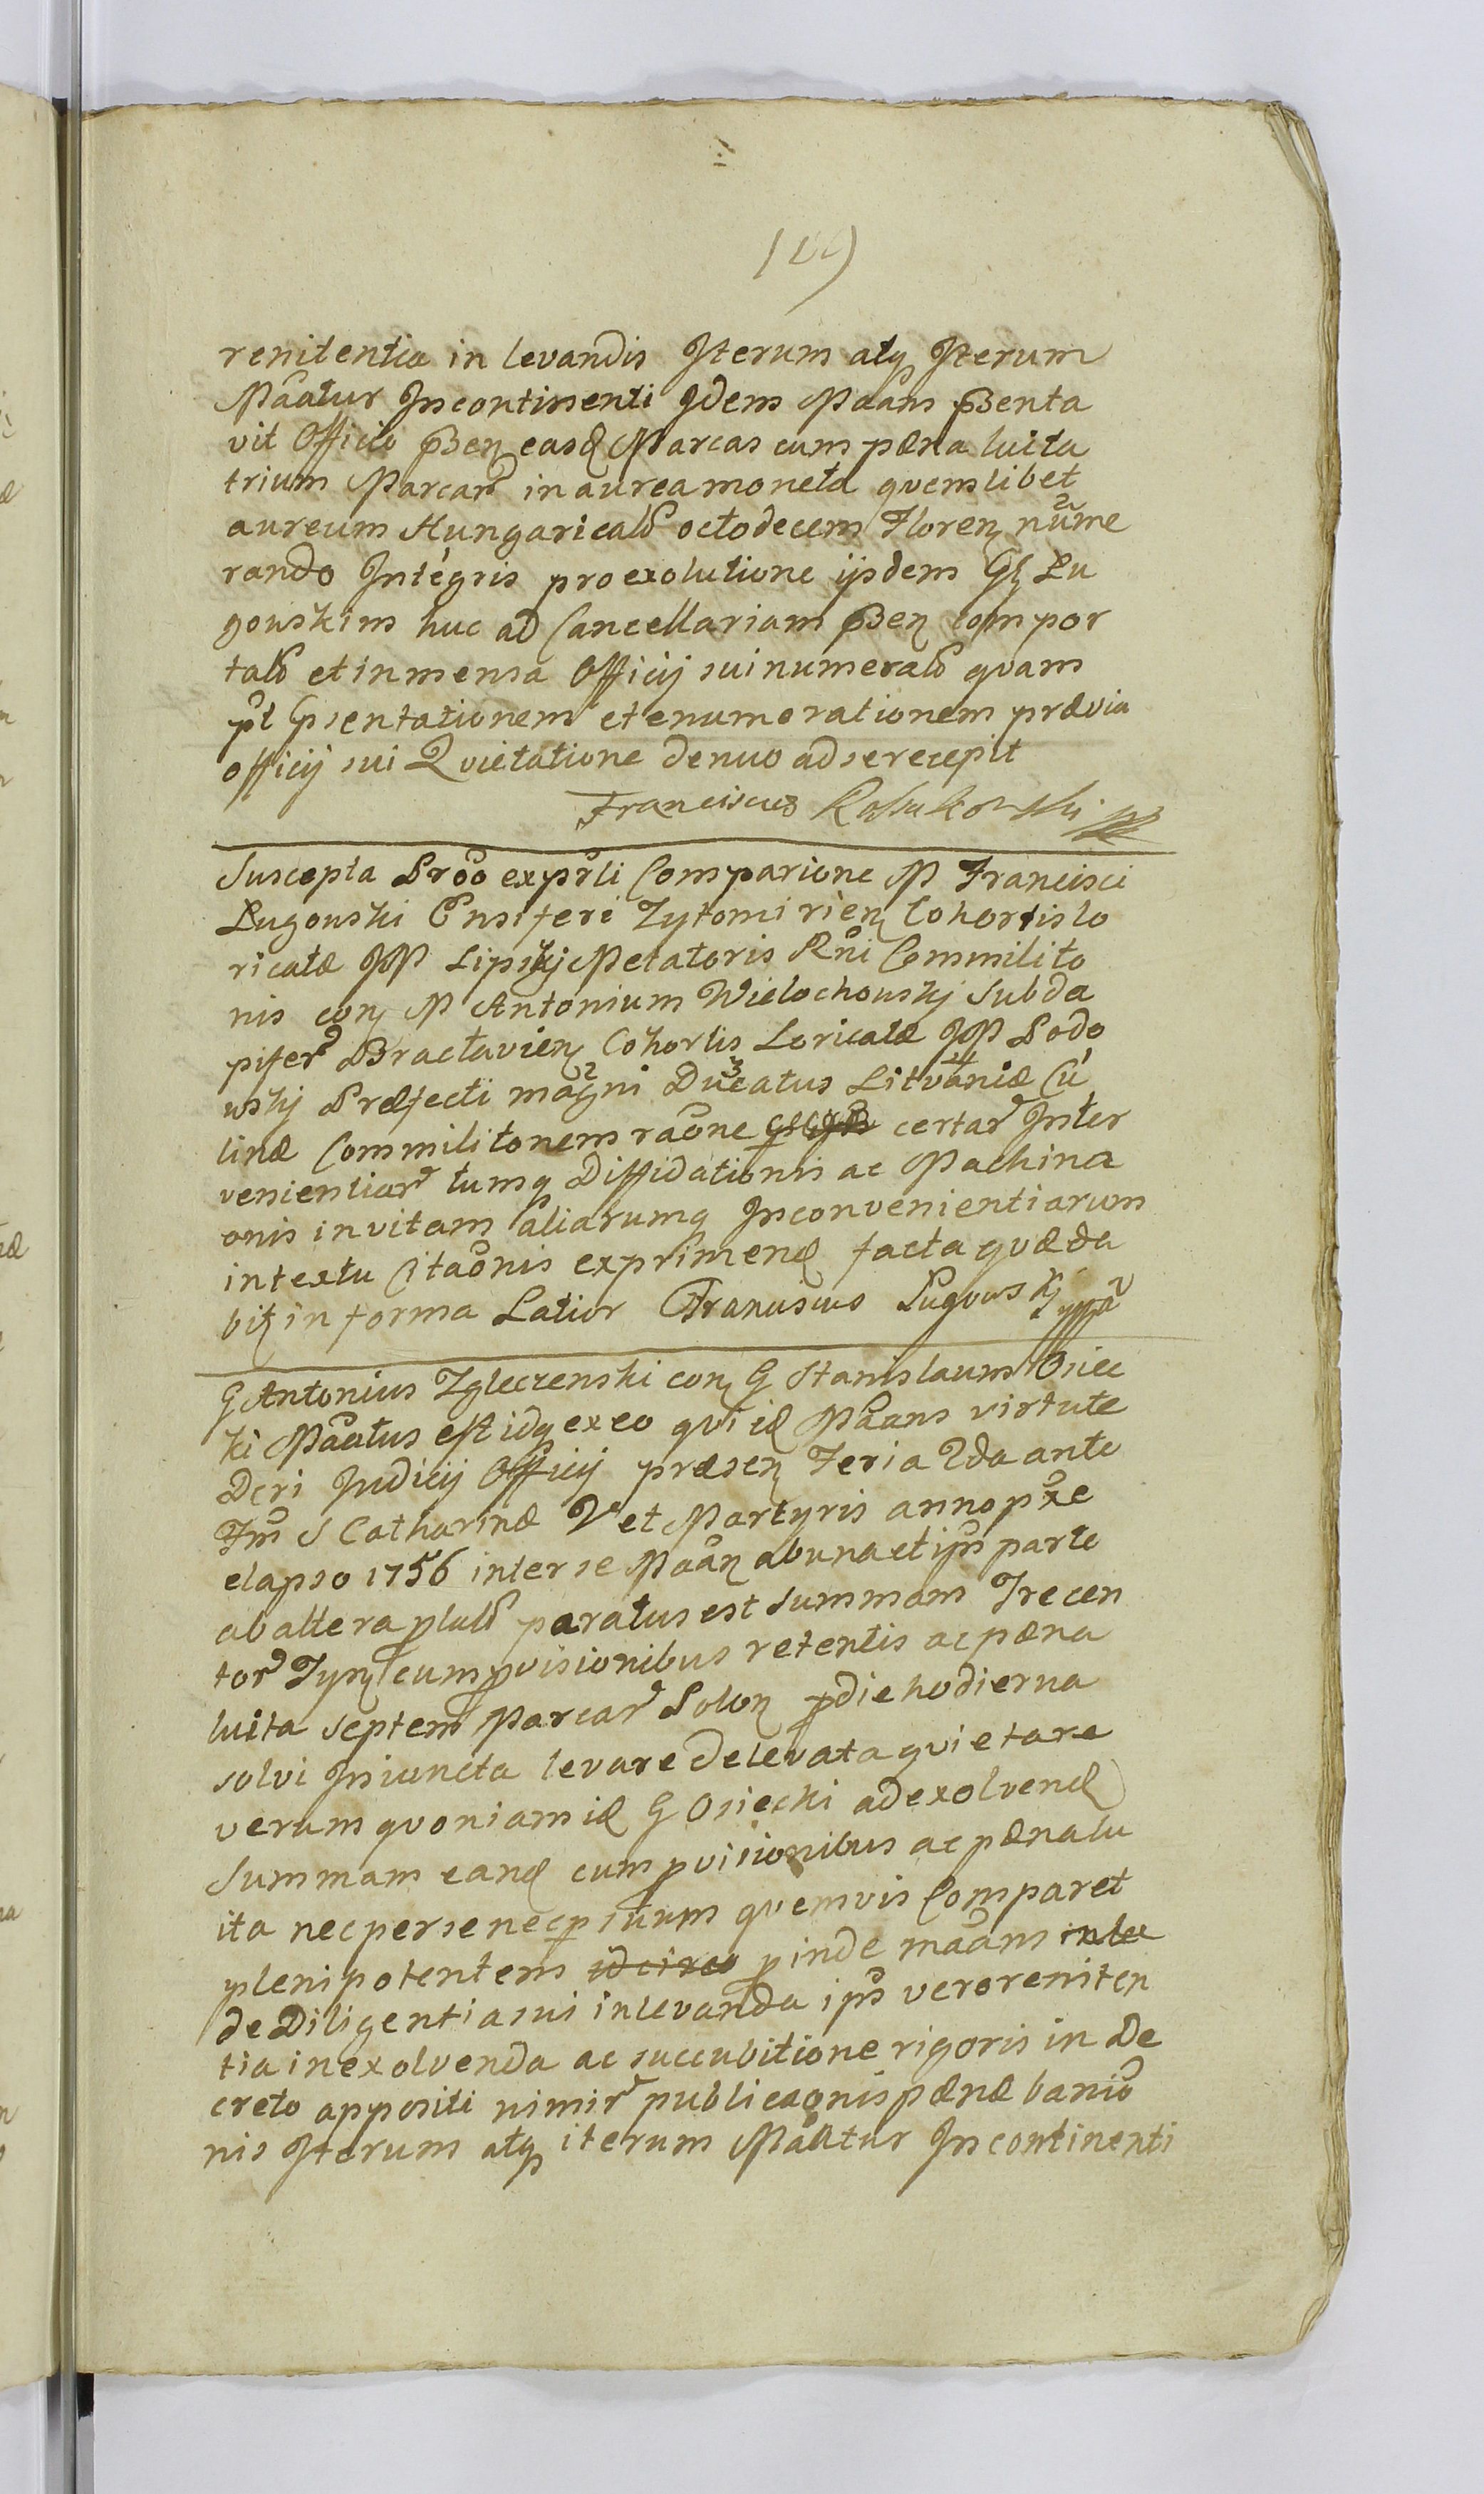 renitentia in levandis Iterum atq Iterum
Mãatur Incontinenti Idem Mãans pßenta
vit Officio pßen easd Marcas cum pæna luita
trium Marcar in aurea moneta qvemlibet
aureum Hungaricalem octodecem Floren nume
rando Integris pro exolutione ijsdem GG Lu
gowskim huc ad Cancellariam pßen compor
tatõ et in mensa Officij sui numeratõ qvam
pt psentationem et enumerationem prævia
officij sui Qvietatione denuo ad se recepit
Franciscus
Suscepta Proõ expurli Comparione M Francisci
Lugowski Ensiferi Zytomirien Cohortis lo
ricatæ JM Lipskj Metatoris Rñi Commilito
nis con M Antonium Wielochowskj Subda
piferr Bractavien Cohortis Loricatæ JM Sodo
wskj Præfecti magni Ducatus Litvaniæ Cu
linæ Commilitonem raõne certar Inter
venientiar tumq Diffidationis ac Machina
onis in vitam aliarumq Inconvenientiarum
in textu Citaõnis exprimend facta qvæ da
bit in forma Latior Franciscus Lugowskj mppa
G Antonius Zgleczenski con G Stanislaum Osiec
ki Mãatus est idq ex eo qvi id Mãans virtute
Dcri Judicij Officij præsen Feria 2da ante
Fm S Catharinæ V et Martyris anno pxe
elapso 1756 inter se Mãan ab una et ipm parte
ab altera platõ paratus est summam Trecen
tor Tynf cum pvisionibus retentis ac pæna
luita septem Marcar Polon p die hodierna
solvi Iniuncta levare de levata qvietare
verum qvoniam id G Osiecki ad exolvend
Summam eand cum pvisionibus ac pæna lu
ita nec per se nec p suum qvemvis Comparet
plenipotentem idcirco pinde mãans inlu
de Diligentia sui in levanda ips vero reniten
tia in exolvenda ac succubitione rigoris in De
creto appositi nimir publicaonis pænæ banniõ
nis Iterum atq iterum Mãatur Incontinenti